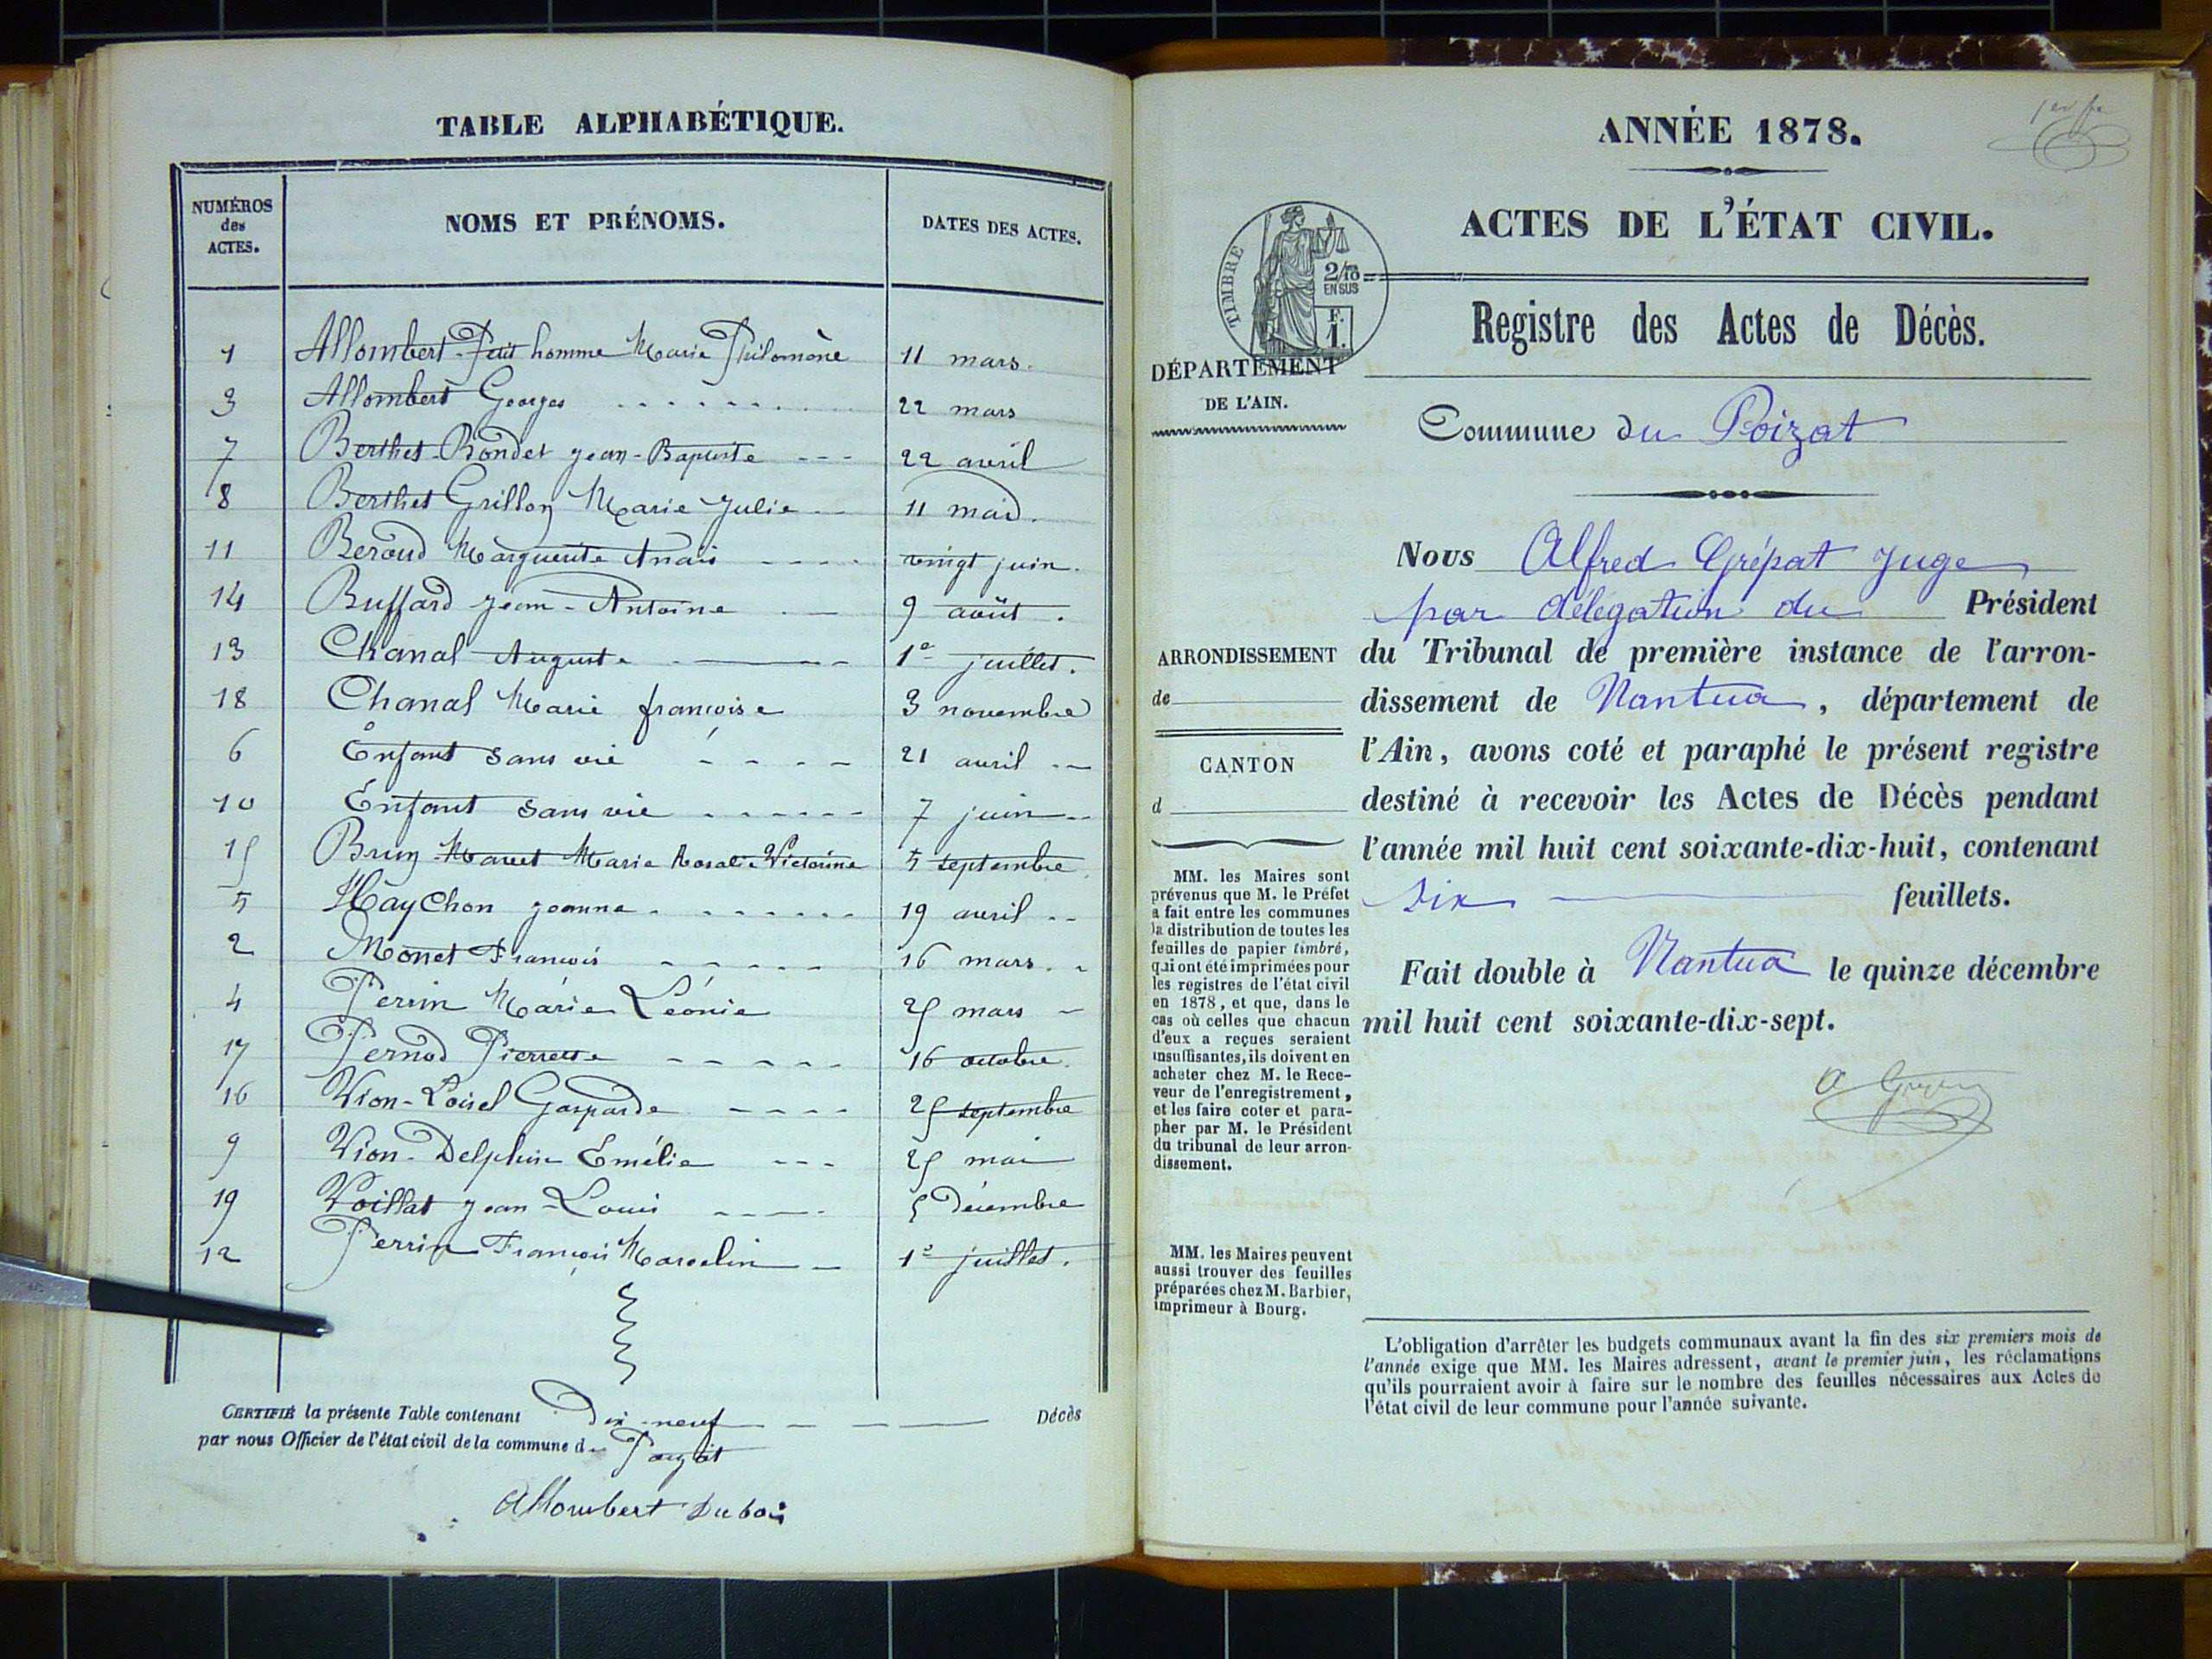 TABLE ALPHABÉTIQUE.
NUMÉROS des ACTES. NOMS ET PRÉNOMS. DATES DES ACTES.
1 Allombert-Petit homme Marie Philomène 11 mars.
3 Allombert Georges 22 mars
7 Berthet-Bondet jean-Baptiste --- 22 avril
8 Berthet Grillon Marie Julie -- 11 mai.
11 Beroud Marguerite Anaïs ---- vingt juin.
14 Buffard jean-Antoine 9 août.
13 Chanal Auguste 1er juillet.
18 Chanal Marie françoise 3 novembre
6 Enfant sans vie - - - - 21 avril --
10 Enfant sans vie 7 juin --
15 Brun Marie Rosalie Victorine 5 septembre
5 Maychon jeanne 19 avril --
2 Monet François - - - - - 16 mars.
4 Perrin Marie Léonie 25 mars -
17 Pernod Pierrette - - - - - 16 octobre.
16 Vion-Loisel Gasparde ---- 25 septembre
9 Vion-Delphin Emélie --- 25 mai
19 Voillat jean-Louis 5 Décembre
12 Perrin François Marcelin -- 1er juillet.
CERTIFIÉ la présente Table contenant Dix-neuf Décès
par nous Officier de l'état civil de la commune d. Poizat
Allombert Dubois
ANNÉE 1878.
ACTES DE L'ÉTAT CIVIL.
TIMBRE
2/10
EN SUS
F.
1.
Registre des Actes de Décès.
DÉPARTEMENT
DE L'AIN.
Commune du Poizat
Nous Alfred Grépat Juge
par délégation du Président
du Tribunal de première instance de l'arron-
dissement de Nantua, département de
l'Ain, avons coté et paraphé le présent registre
destiné à recevoir les Actes de Décès pendant
l'année mil huit cent soixante-dix-huit, contenant
six feuillets.
Fait double à Nantua le quinze décembre
mil huit cent soixante-dix-sept.
ARRONDISSEMENT
de
CANTON
d
MM. les Maires sont
prévenus que M. le Préfet
a fait entre les communes
la distribution de toutes les
feuilles de papier timbré,
qui ont été imprimées pour
les registres de l'état civil
en 1878, et que, dans le
cas où celles que chacun
d'eux a reçues seraient
insuffisantes, ils doivent en
acheter chez M. le Rece-
veur de l'enregistrement,
et les faire coter et para-
pher par M. le Président
du tribunal de leur arron-
dissement.
MM. les Maires peuvent
aussi trouver des feuilles
préparées chez M. Barbier,
imprimeur à Bourg.
L'obligation d'arrêter les budgets communaux avant la fin des six premiers mois de
l'année exige que MM. les Maires adressent, avant le premier juin, les réclamations
qu'ils pourraient avoir à faire sur le nombre des feuilles nécessaires aux Actes de
l'état civil de leur commune pour l'année suivante.